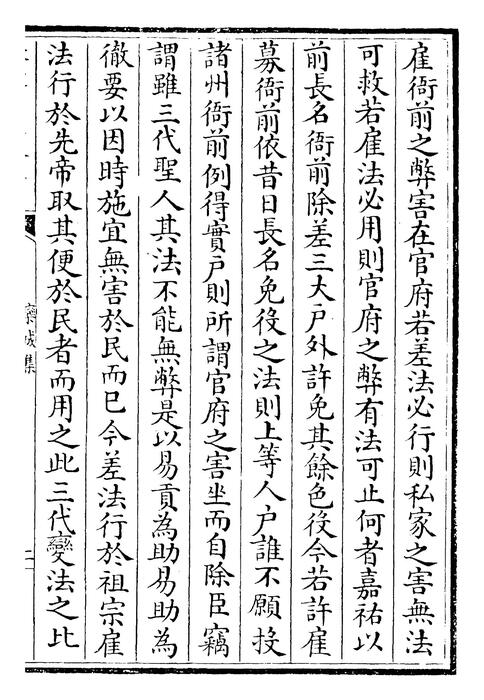 雇衙前之弊害在官府若差法必行則私家之害無法
可救若雇法必用則官府之弊有法可止何者嘉祐以
前長名衙前除差三大戶外許免其餘色役今若許雇
募衙前依昔日長名免役之法則上等人戶誰不願投
諸州衙前例得實戶則所謂官府之害坐而自除臣竊
謂雖三代聖人其法不能無弊是以易貢為助易助為
徹要以因時施宜無害於民而已今差法行於祖宗雇
法行於先帝取其便於民者而用之此三代變法之比
欒城集